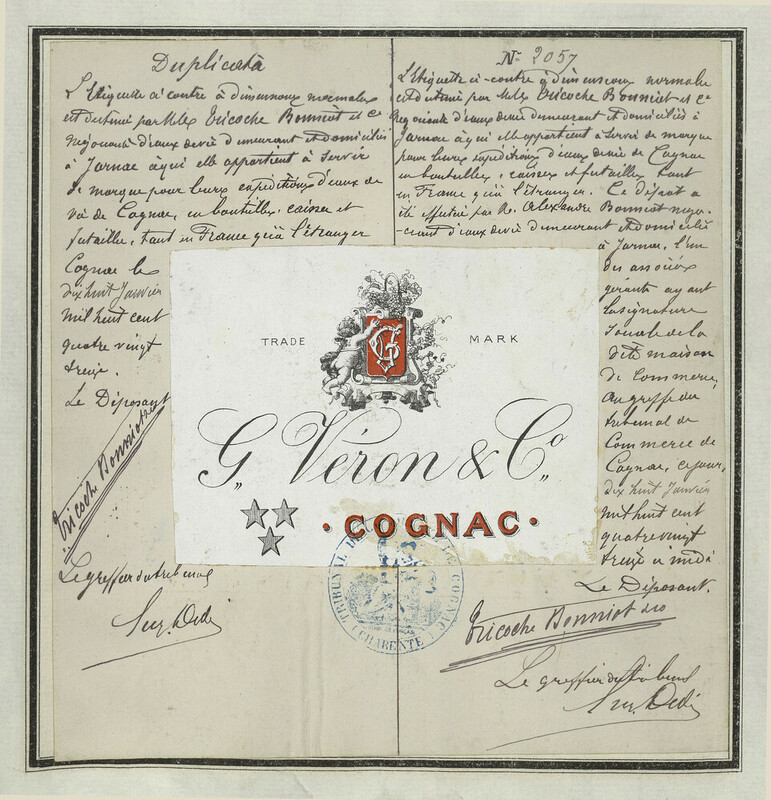 Duplicata
L'Etiquette ci contre à dimensions normales
est destinée par M.les Tricoche Bonniot et Cie
négociants d'eaux de vie demeurant et domiciliés
à Jarnac à qui elle appartient à servir
de marque pour leurs expéditions d'eaux de
vie de Cognac, en bouteilles, caisses et
futailles, tant en France qu'à l'étranger
Cognac le
dix huit Janvier
mil huit cent
quatre vingt
treize.
Le Déposant
Tricoche Bonniot & Co
Le greffier du tribunal
No 2057
L'Etiquette ci-contre à dimensions normales
est destinée par M.les Tricoche Bonniot et Cie
négociants d'eaux de vie demeurant et domiciliés à
Jarnac à qui elle appartient à servir de marque
pour leurs expéditions d'eaux de vie de Cognac
en bouteilles, caisses et futailles tant
en France qu'à l'étranger. Ce dépôt a
été effectué par M. Alexandre Bonniot négo-
-ciant d'eaux de vie demeurant et domicilié
à Jarnac, l'un
des associés
gérants ayant
la signature
sociale de la
dite maison
de Commerce,
au greffe du
tribunal de
Commerce de
Cognac, ce jour,
dix huit Janvier
mil huit cent
quatre vingt
treize à midi
Le Déposant.
Tricoche Bonniot & Co
Le greffier du tribunal
TRADE MARK
G. Véron & Co
COGNAC
TRIBUNAL DE COMMERCE DE COGNAC
(CHARENTE)